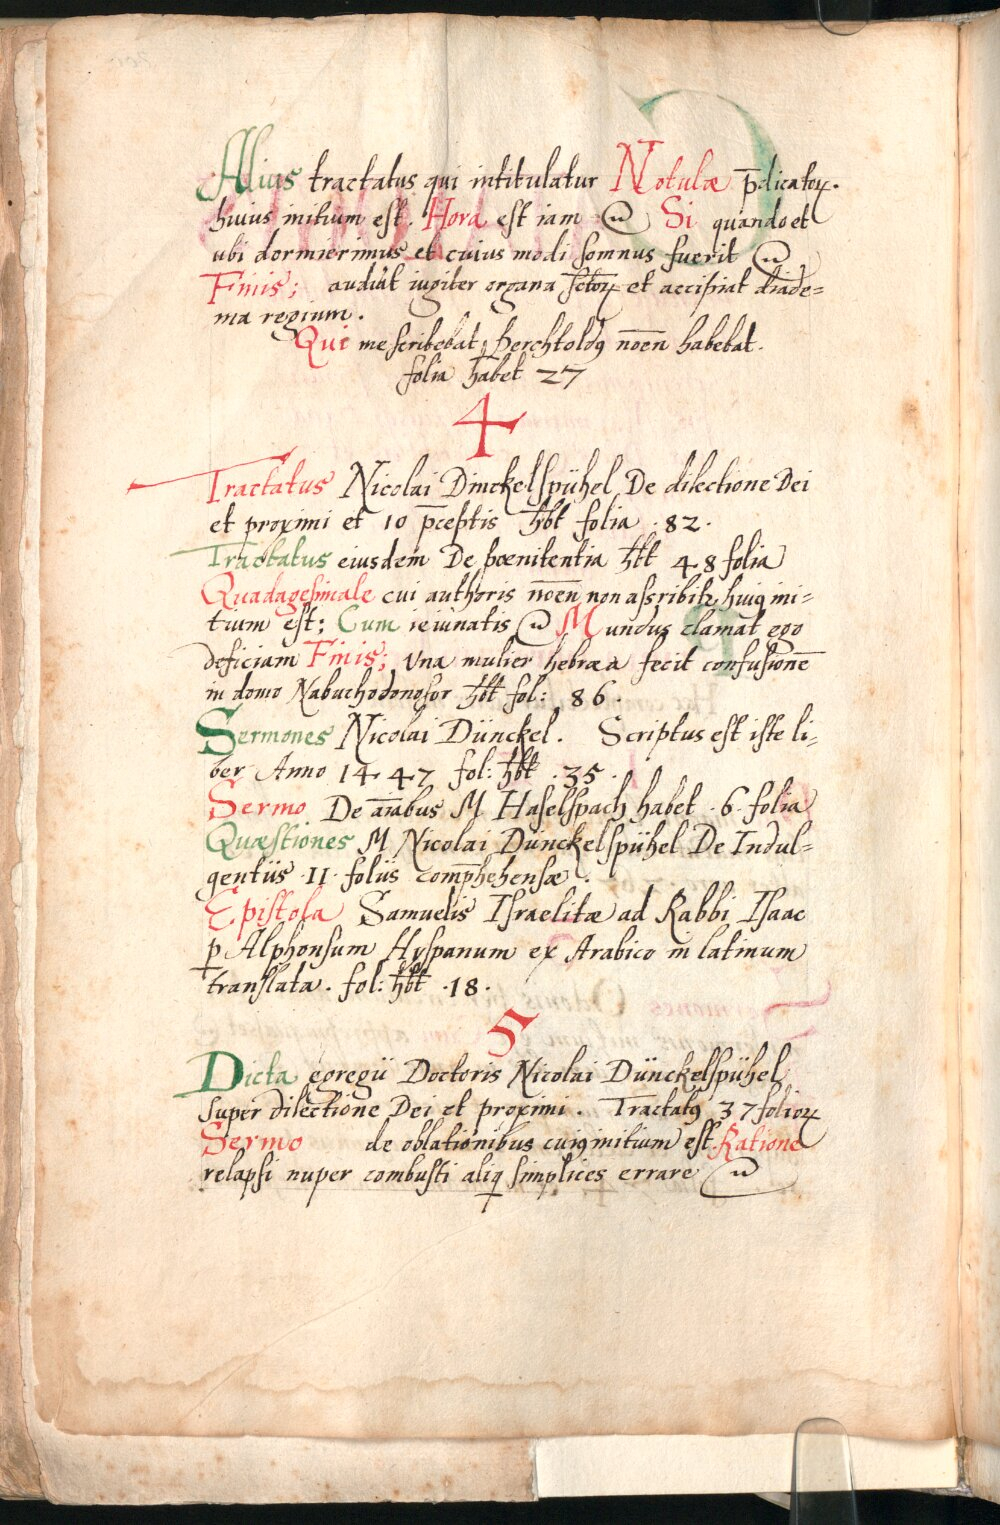 Alius tractatus qui intitulatur Notulæ p̄dicatoꝝ.
huius initium est. Hora est iam Si quando et
ubi dormierimus et cuius modi somnus fuerit
Finis; audiūt iugiter organa sctoꝝ et accipiat diade=
ma regium.
Qui me scribebat, Berchtoldꝯ noēn habebat.
folia habet 27
4
Tractatus Nicolai Dinckelspühel De dilectione Dei
et proximi et 10 p̄ceptis hb̄t folia .82.
Tractatus eiusdem De pœnitentia hb̄t 48 folia
Quadagesimale cui authoris noēn non assribitꝛ huiꝯ ini=
tium est: Cum ieiunatis Mundus clamat ego
deficiam Finis; Una mulier hebræa fecit confusionē
in domo Nabuchodonosor hb̄t fol: 86.
Sermones Nicolai Dünckel. Scriptus est iste li=
ber Anno 1447 fol: hb̄t .35.
Sermo De aīabus M Haselspach habet .6. folia
Quæstiones M Nicolai Dünckelspühel De Indul=
gentiis .11. foliis comp̄hehensæ.
Epistola Samuelis Israelitæ ad Rabbi Isaac
ꝑ Alphonsum Hyspanum ex Arabico in latinum
translata. fol: hb̄t .18.
5
Dicta egregii Doctoris Nicolai Dünckelspühel
super dilectione Dei et proximi. Tractatꝯ 37 folioꝝ
Sermo de oblationibus cuiꝯ initium est. Ratione
relapsi nuper combusti aliq simplices errare